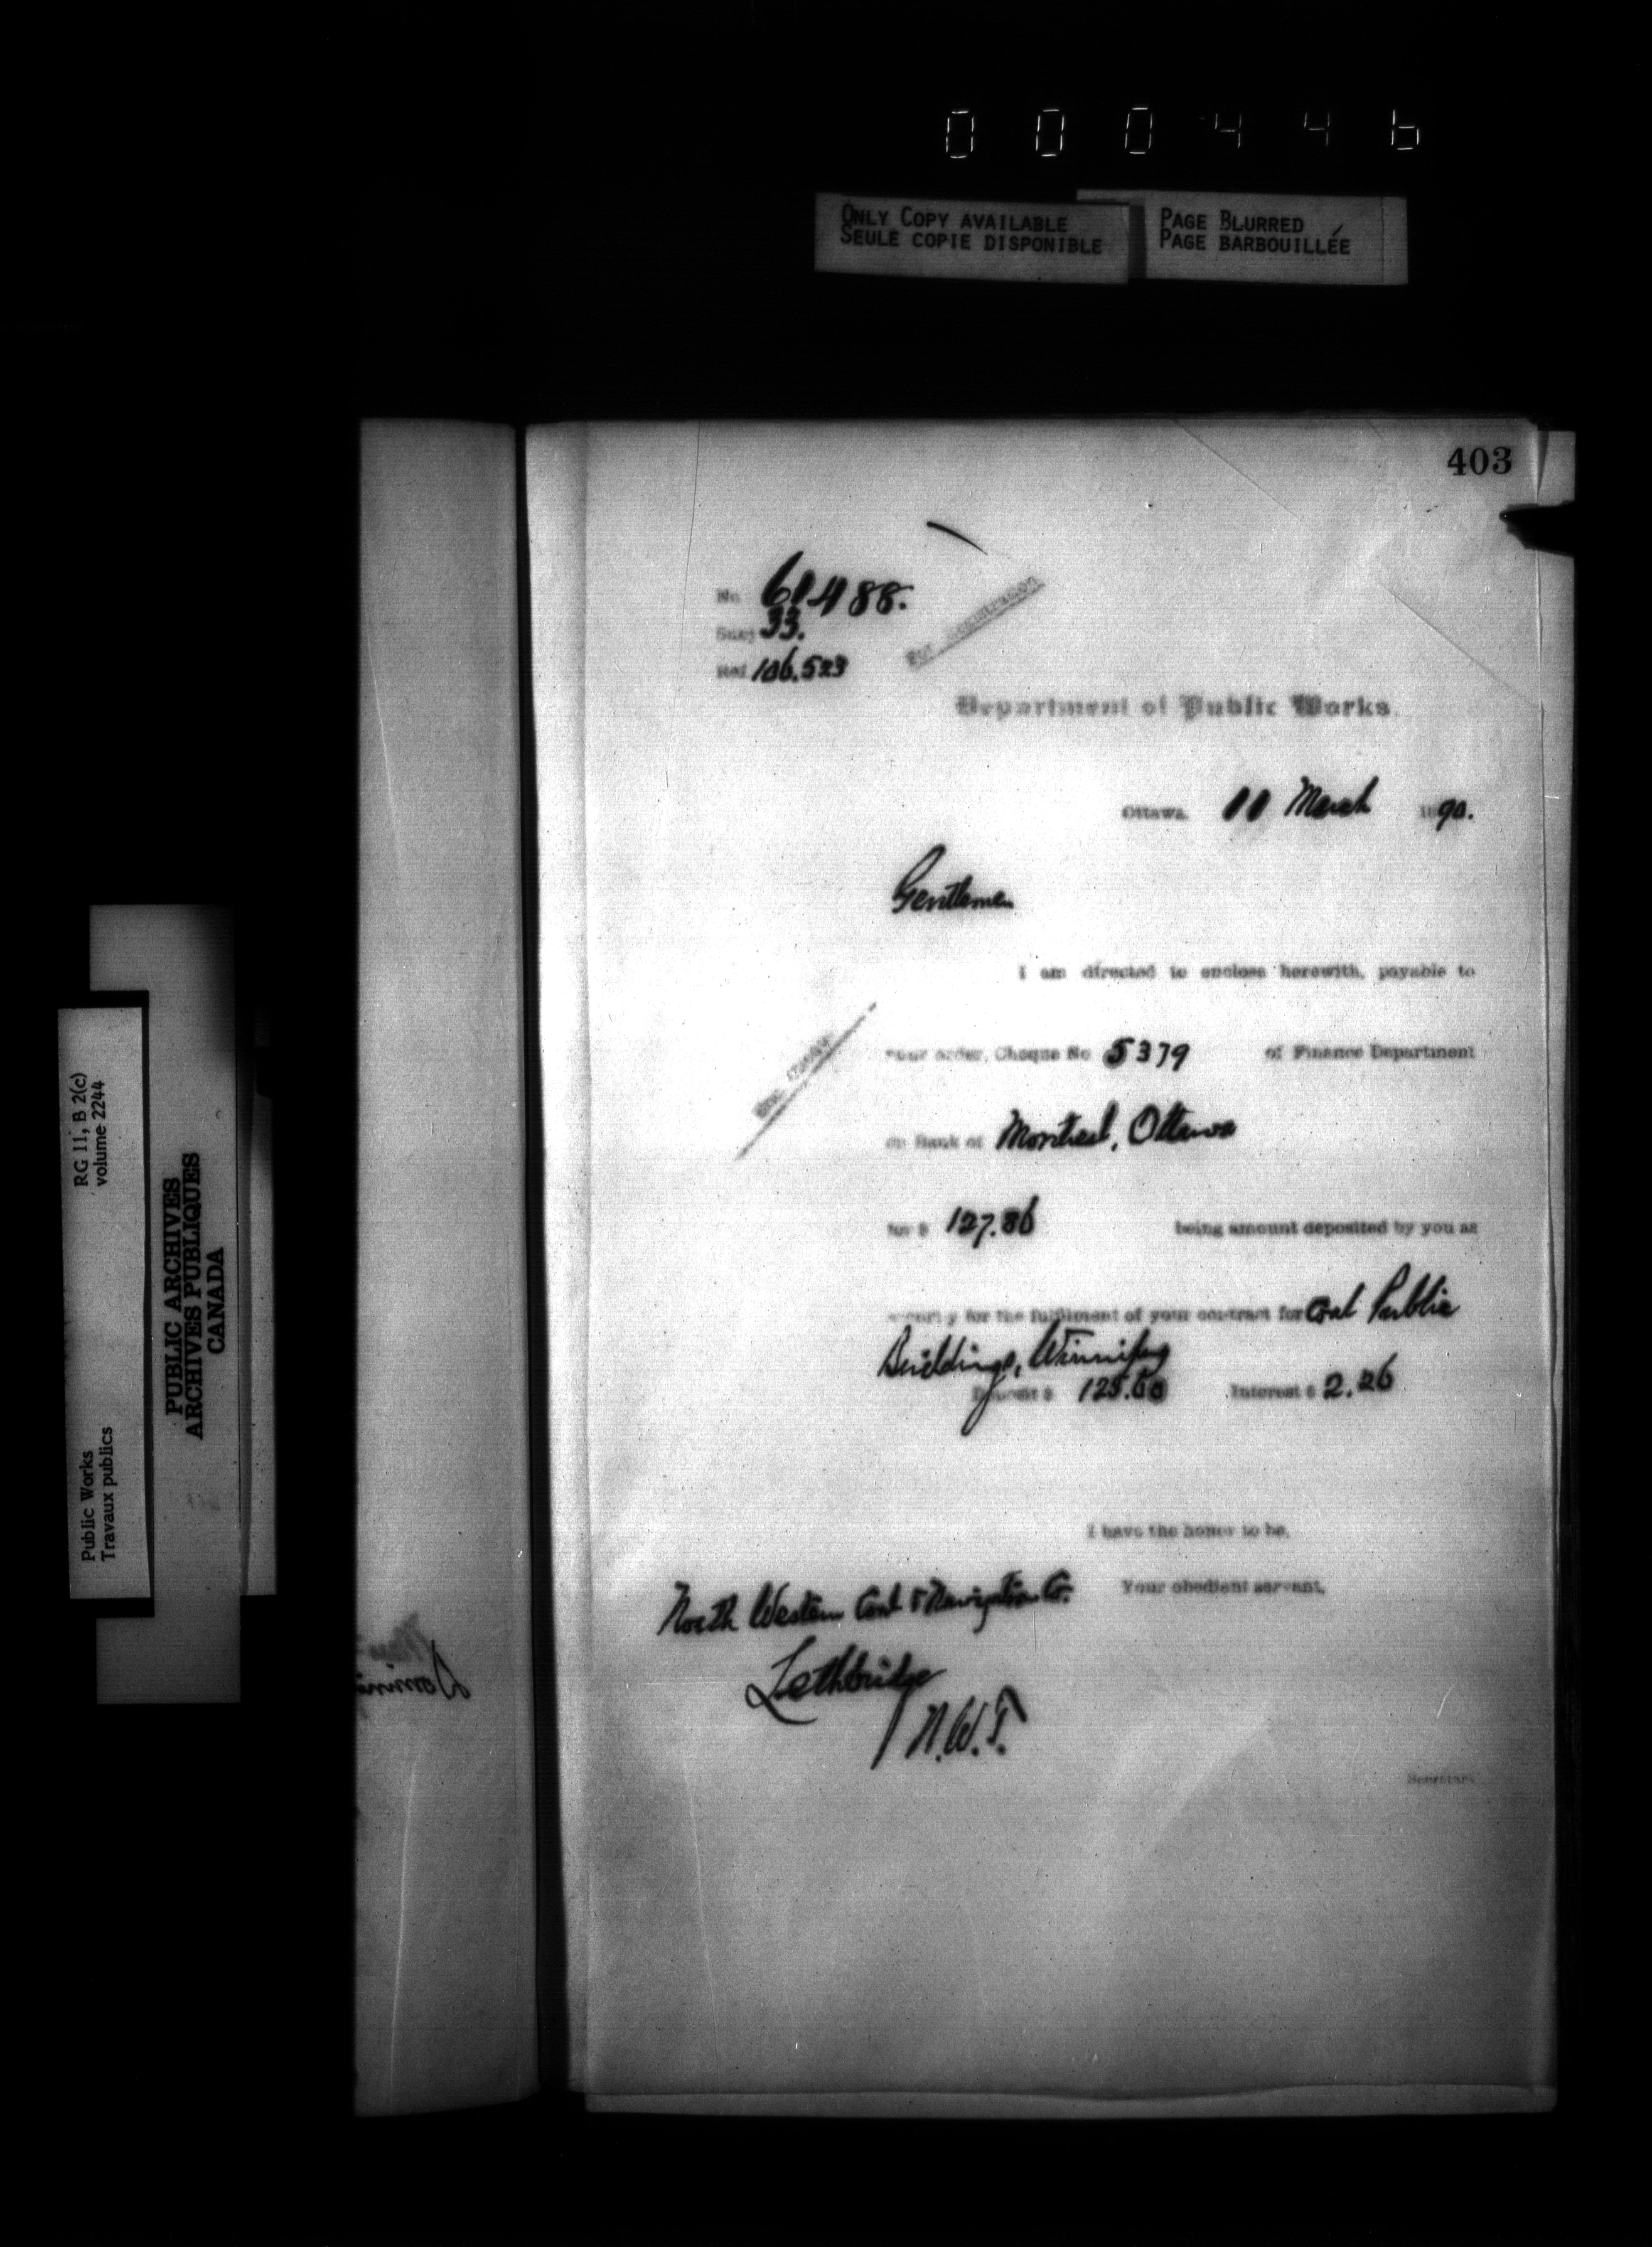 000446
ONLY COPY AVAILABLE
SEULE COPIE DISPONIBLE
PAGE BLURRED
PAGE BARBOUILLÉE
403
No 61488.
Subj 33.
Ref 106.523
For Registration
Department of Public Works
Ottawa, 11 March 1890.
Gentlemen
I am directed to enclose herewith, payable to
your order, Cheque No 5379 of Finance Department
on Bank of Montreal, Ottawa
for $ 127.86 being amount deposited by you as
security for the fulfilment of your contract for Coal Public
Buildings, Winnipeg
Deposit $ 125.60 Interest $ 2.26
I have the honor to be,
Your obedient servant,
North Western Coal & Navigation Co.
Lethbridge
N.W.T.
Secretary
RG 11, B 2(c)
volume 2244
Public Works
Travaux publics
PUBLIC ARCHIVES
ARCHIVES PUBLIQUES
CANADA